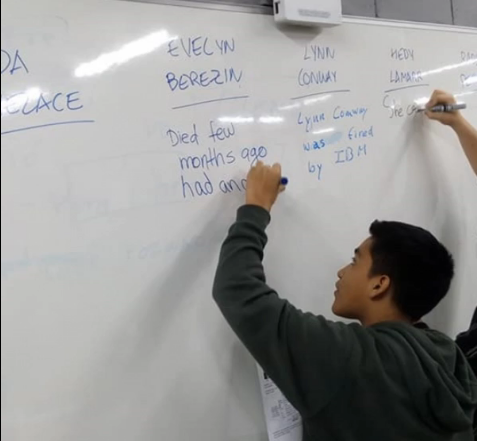 DA
ELACE
EVELYN
BEREZIN
Died few
months ago
had an
LYNN
CONWAY
Lynn Conway
was fired
by IBM
HEDY
LAMARR
She